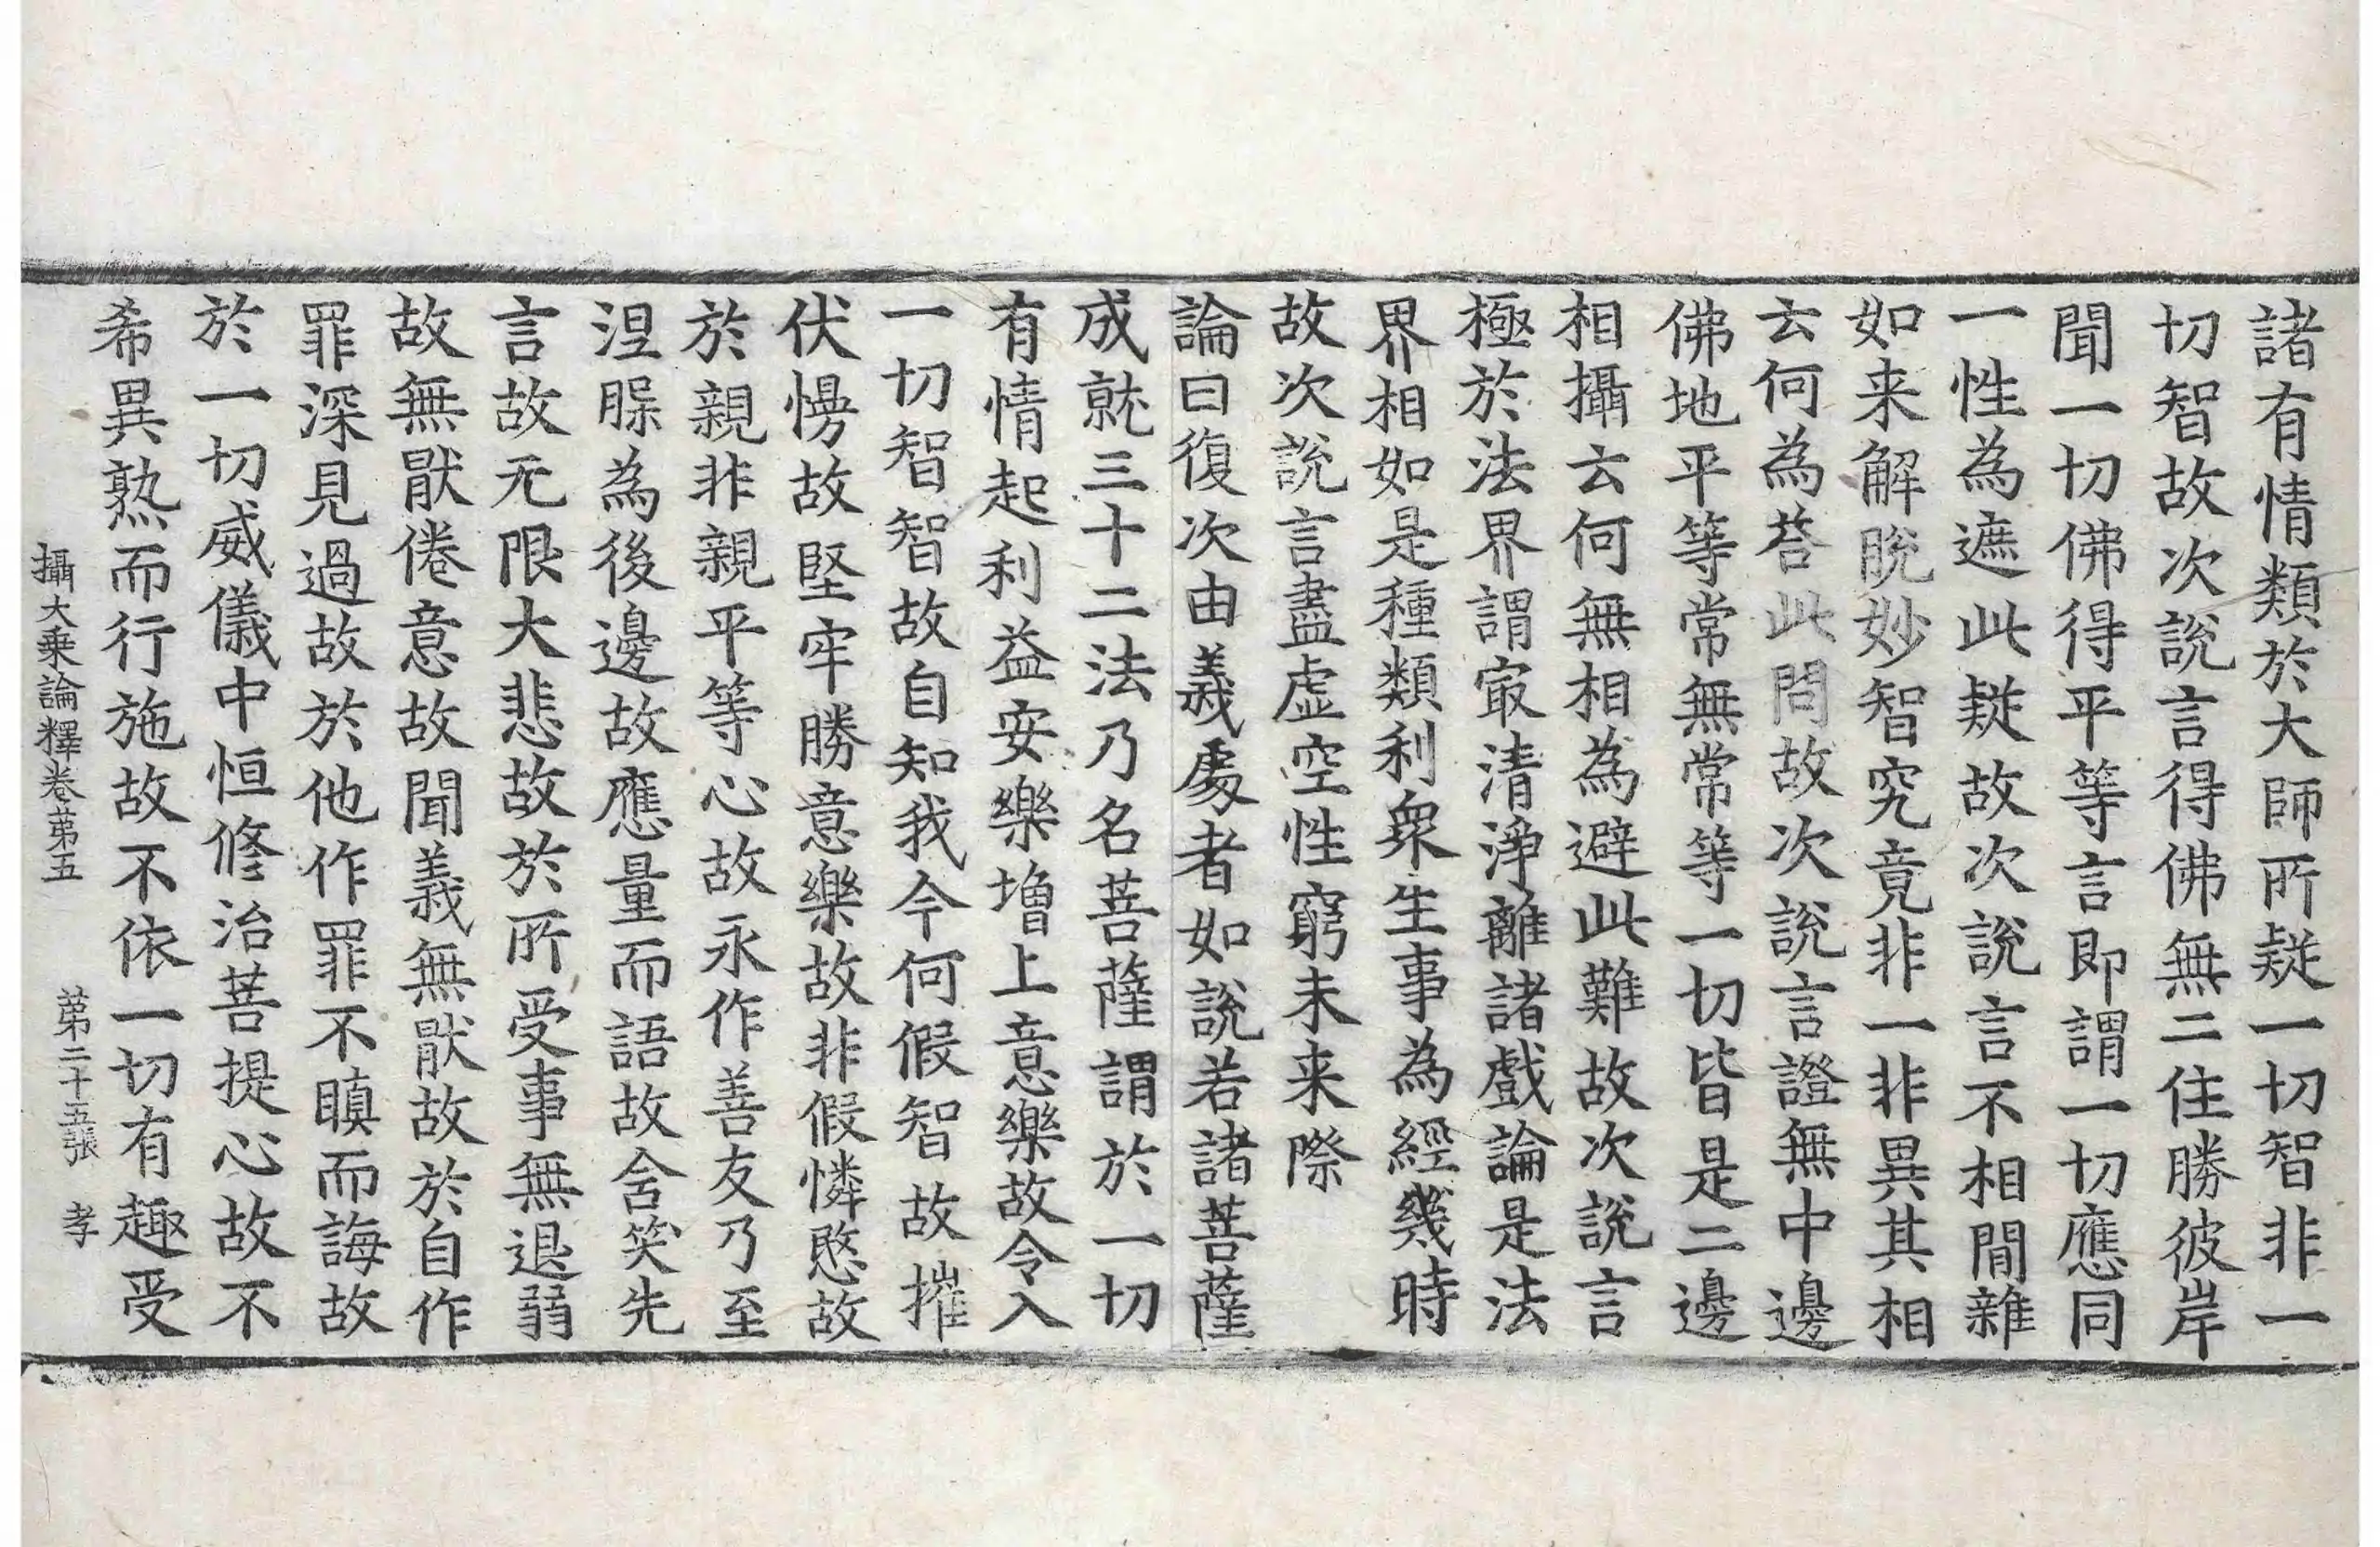 諸有情類於大師所疑一切智非一
切智故次說言得佛無二住勝彼岸
聞一切佛得平等言即謂一切應同
一性為遮此疑故次說言不相間雜
如来解脫妙智究竟非一非異其相
云何為荅此問故次說言證無中邊
佛地平等常無常等一切皆是二邊
相攝云何無相為避此難故次說言
極於法界謂㝡清淨離諸戲論是法
界相如是種類利衆生事為經幾時
故次說言盡虛空性窮未来際
論曰復次由義處者如說若諸菩薩
成就三十二法乃名菩薩謂於一切
有情起利益安樂增上意樂故令入
一切智智故自知我今何假智故摧
伏慢故堅牢勝意樂故非假憐愍故
於親非親平等心故永作善友乃至
涅腂為後邊故應量而語故含笑先
言故无限大悲故於所受事無退弱
故無猒倦意故聞義無猒故於自作
罪深見過故於他作罪不瞋而誨故
於一切威儀中恒修治菩提心故不
希異熟而行施故不依一切有趣受
攝大乗論釋卷苐五 苐二十五張 孝